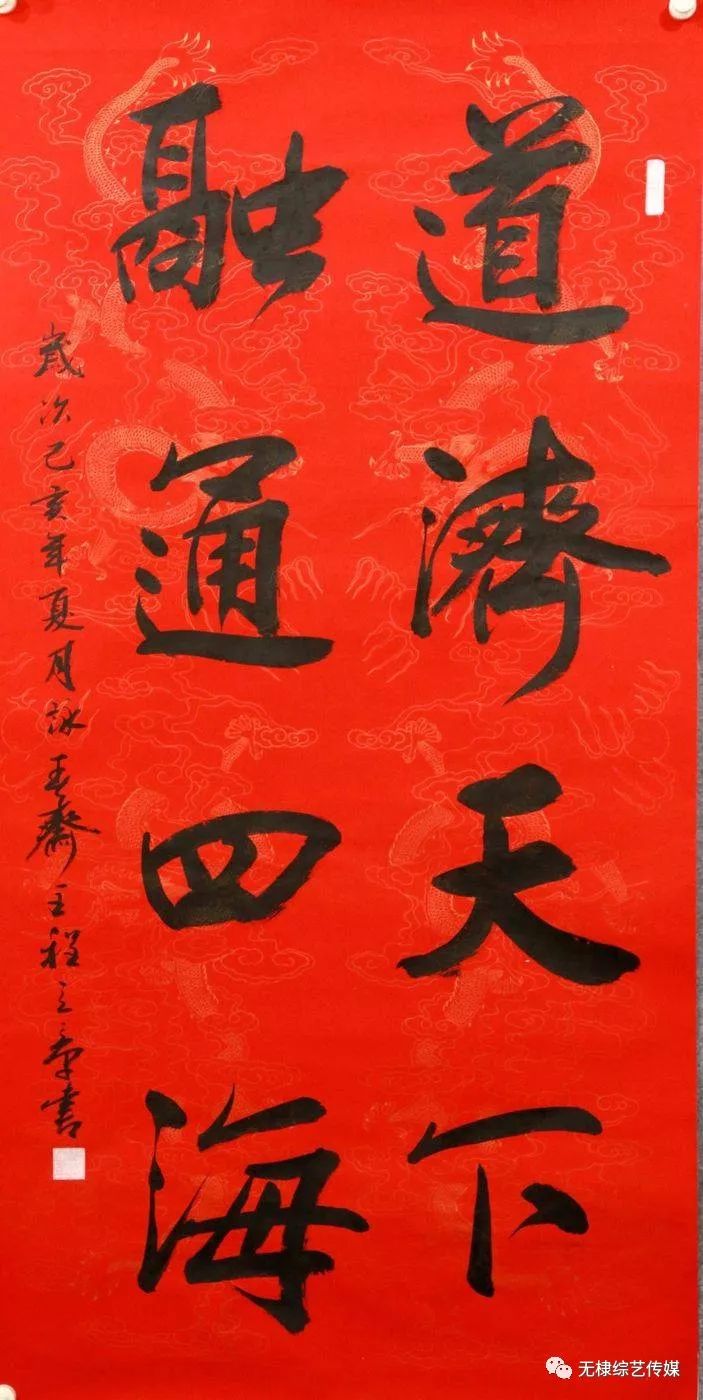 道濟天下
融通四海
歲次己亥年夏月詠春齋主程立章書
无棣综艺传媒